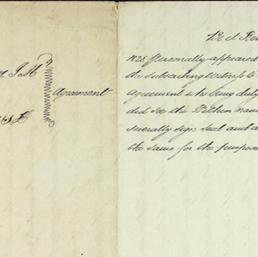 Agreement
1828 personally appeared
the subscribing witness to
agreement who being duly
did see the Within nam
severally sign seal and a
the same for the purpose